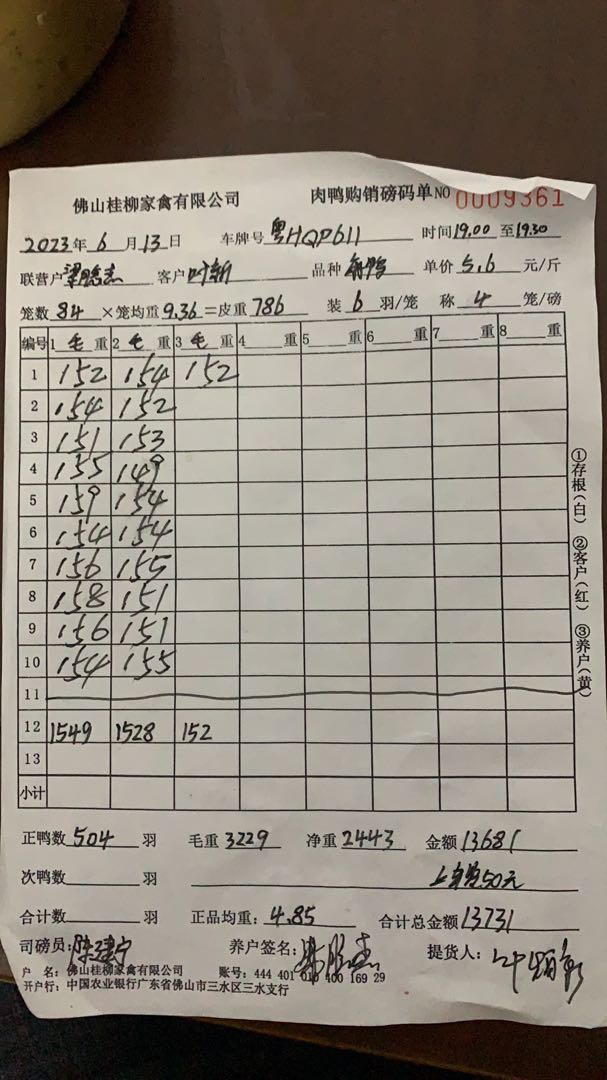 佛山桂柳家禽有限公司 肉鸭购销磅码单 NO 0009361
2023年6月13日 车牌号 粤HQP611 时间19.00至19.30
联营户 梁鹏杰 客户 叶新 品种 单价5.6元/斤
笼数 84 ×笼均重9.36=皮重 786 装 6 羽/笼 称 4 笼/磅
编号 1 毛 重 2 毛 重 3 毛 重 4 重 5 重 6 重 7 重 8 重
1 152 154 152
2 154 152
3 151 153
4 155 149
5 159 154
6 154 154
7 156 155
8 158 151
9 156 151
10 154 155
11
12 1549 1528 152
13
小计
正鸭数 504 羽 毛重 3229 净重 2443 金额 13681
次鸭数 羽 50元
合计数 羽 正品均重: 4.85 合计总金额 13731
司磅员: 陈建宁 养户签名: 梁鹏杰 提货人:
户 名: 佛山桂柳家禽有限公司 账号: 444 401 010 400 169 29
开户行: 中国农业银行广东省佛山市三水区三水支行
①存根(白) ②客户(红) ③养户(黄)